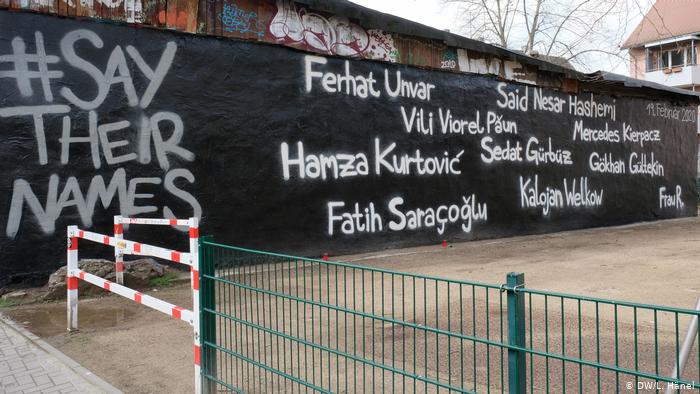 #SAY
THEIR
NAMES
Ferhat Unvar
Said Nesar Hashemi
19. Februar 2020
Vili Viorel Păun
Mercedes Kierpacz
Hamza Kurtović
Sedat Gürbüz
Gökhan Gültekin
Kalojan Welkow
Frau R.
Fatih Saraçoğlu
© DW/L. Hänel